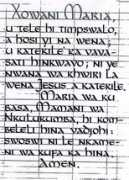 Xowani Maria,
u tele hi timpswalo,
a hosi yi na wena;
u katekile ka vava-
sati hinkwavo; ni ye
nwana wa khwiri la
wena Jesus a katekile.
Maria wa ku
basa, Mamani wa
Nkulukumba, hi kom-
belela hina vadjohi:
swoswi ni le nkame-
ni wa kufa ka hina.
Amen.